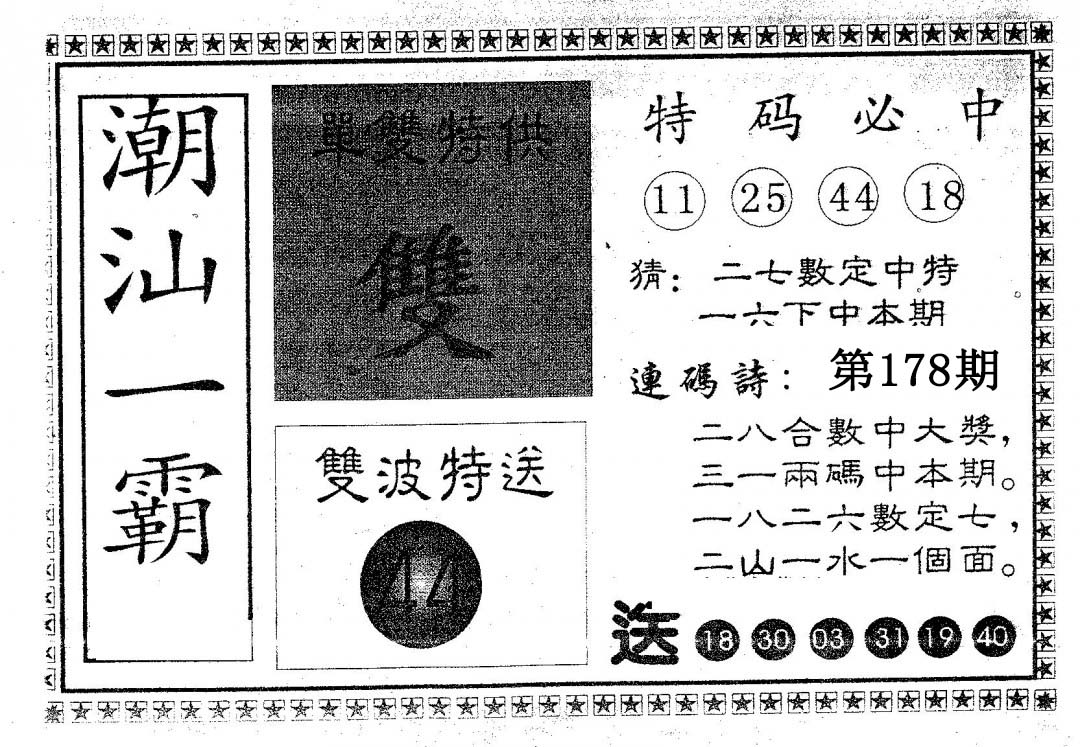 潮汕一霸
單雙特供
雙
雙波特送
44
特码必中
11 25 44 18
猜：二七數定中特
一六下中本期
連碼詩：第178期
二八合數中大獎，
三一兩碼中本期。
一八二六數定七，
二山一水一個面。
送 18 30 03 31 19 40